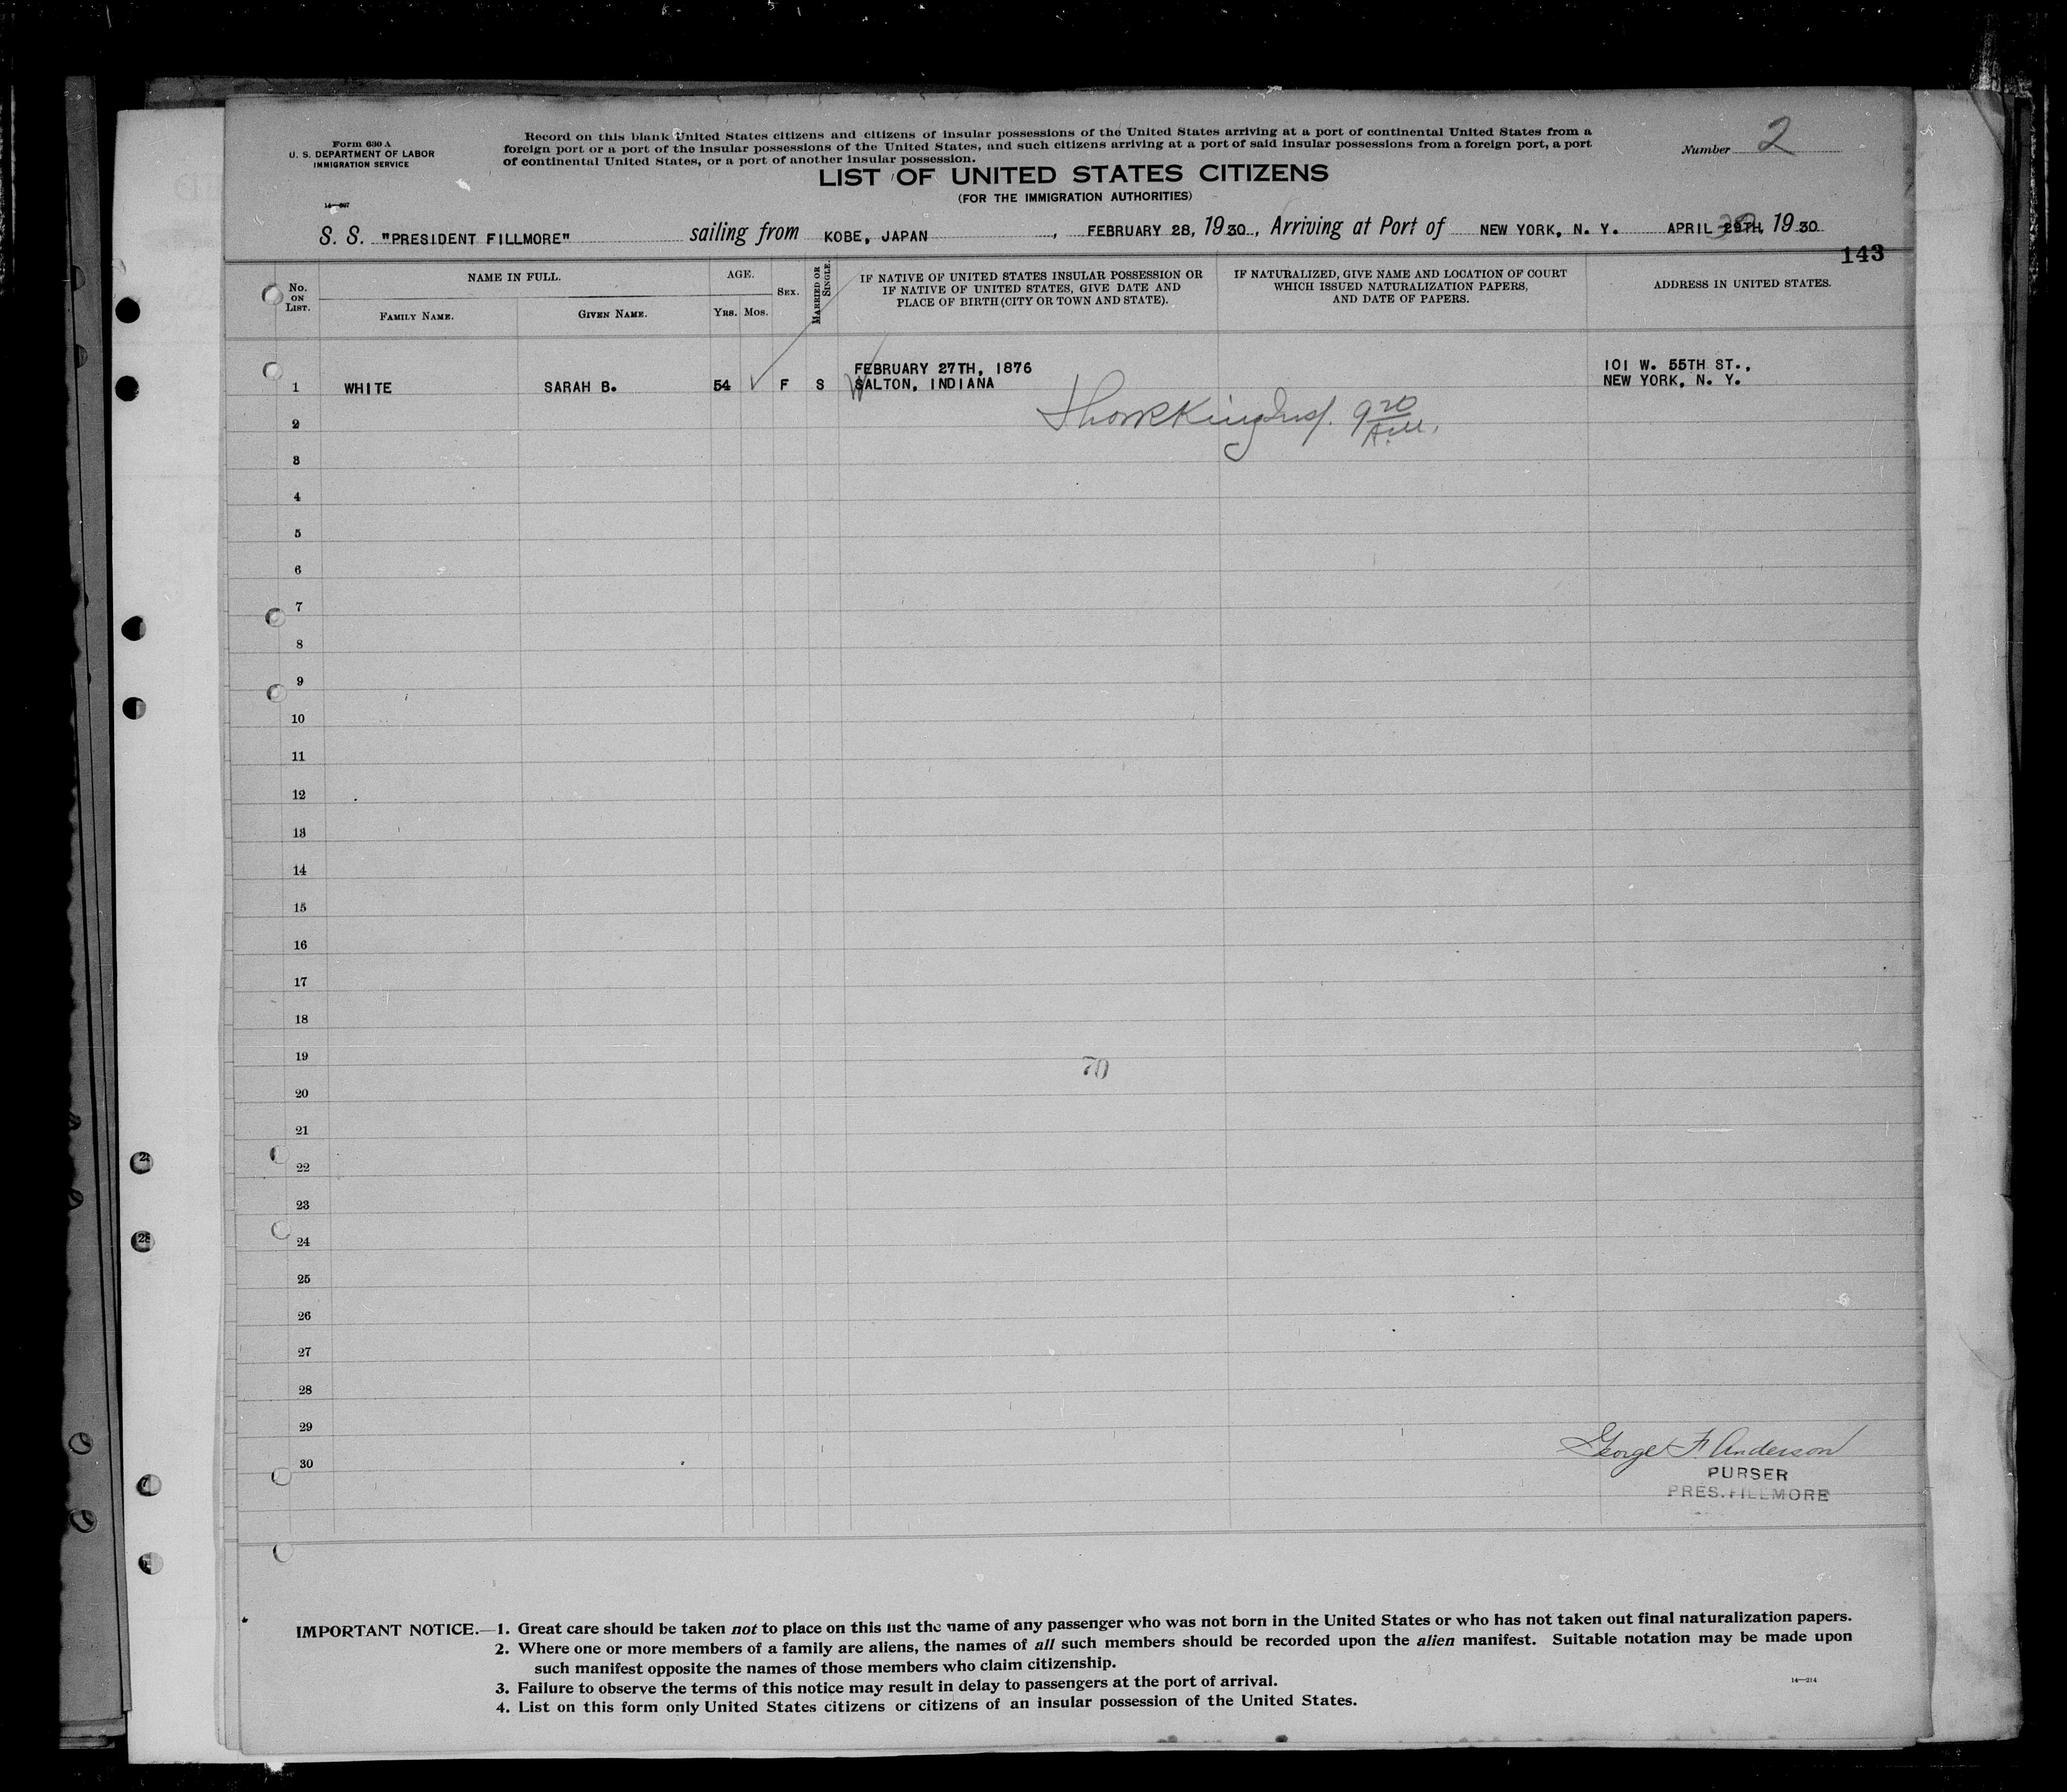 Form 630 A
U. S. DEPARTMENT OF LABOR
IMMIGRATION SERVICE
14—607
Record on this blank United States citizens and citizens of insular possessions of the United States arriving at a port of continental United States from a
foreign port or a port of the insular possessions of the United States, and such citizens arriving at a port of said insular possessions from a foreign port, a port
of continental United States, or a port of another insular possession.
Number 2
LIST OF UNITED STATES CITIZENS
(FOR THE IMMIGRATION AUTHORITIES)
S. S. "PRESIDENT FILLMORE" sailing from KOBE, JAPAN, FEBRUARY 28, 1930, Arriving at Port of NEW YORK, N. Y. APRIL 29TH, 30 1930
143
No. ON LIST.
NAME IN FULL.
FAMILY NAME.
GIVEN NAME.
AGE.
YRS. MOS.
SEX.
MARRIED OR SINGLE.
IF NATIVE OF UNITED STATES INSULAR POSSESSION OR
IF NATIVE OF UNITED STATES, GIVE DATE AND
PLACE OF BIRTH (CITY OR TOWN AND STATE).
IF NATURALIZED, GIVE NAME AND LOCATION OF COURT
WHICH ISSUED NATURALIZATION PAPERS,
AND DATE OF PAPERS.
ADDRESS IN UNITED STATES.
FEBRUARY 27TH, 1876
101 W. 55TH ST.,
1 WHITE SARAH B. 54 F S W SALTON, INDIANA NEW YORK, N. Y.
King Insp. 9 20 A.M.
2
3
4
5
6
7
8
9
10
11
12
13
14
15
16
17
18
19
70
20
21
22
23
24
25
26
27
28
29
George F. Anderson
30
PURSER
PRES. FILLMORE
IMPORTANT NOTICE.—1. Great care should be taken not to place on this list the name of any passenger who was not born in the United States or who has not taken out final naturalization papers.
2. Where one or more members of a family are aliens, the names of all such members should be recorded upon the alien manifest. Suitable notation may be made upon
such manifest opposite the names of those members who claim citizenship.
3. Failure to observe the terms of this notice may result in delay to passengers at the port of arrival.
14—214
4. List on this form only United States citizens or citizens of an insular possession of the United States.